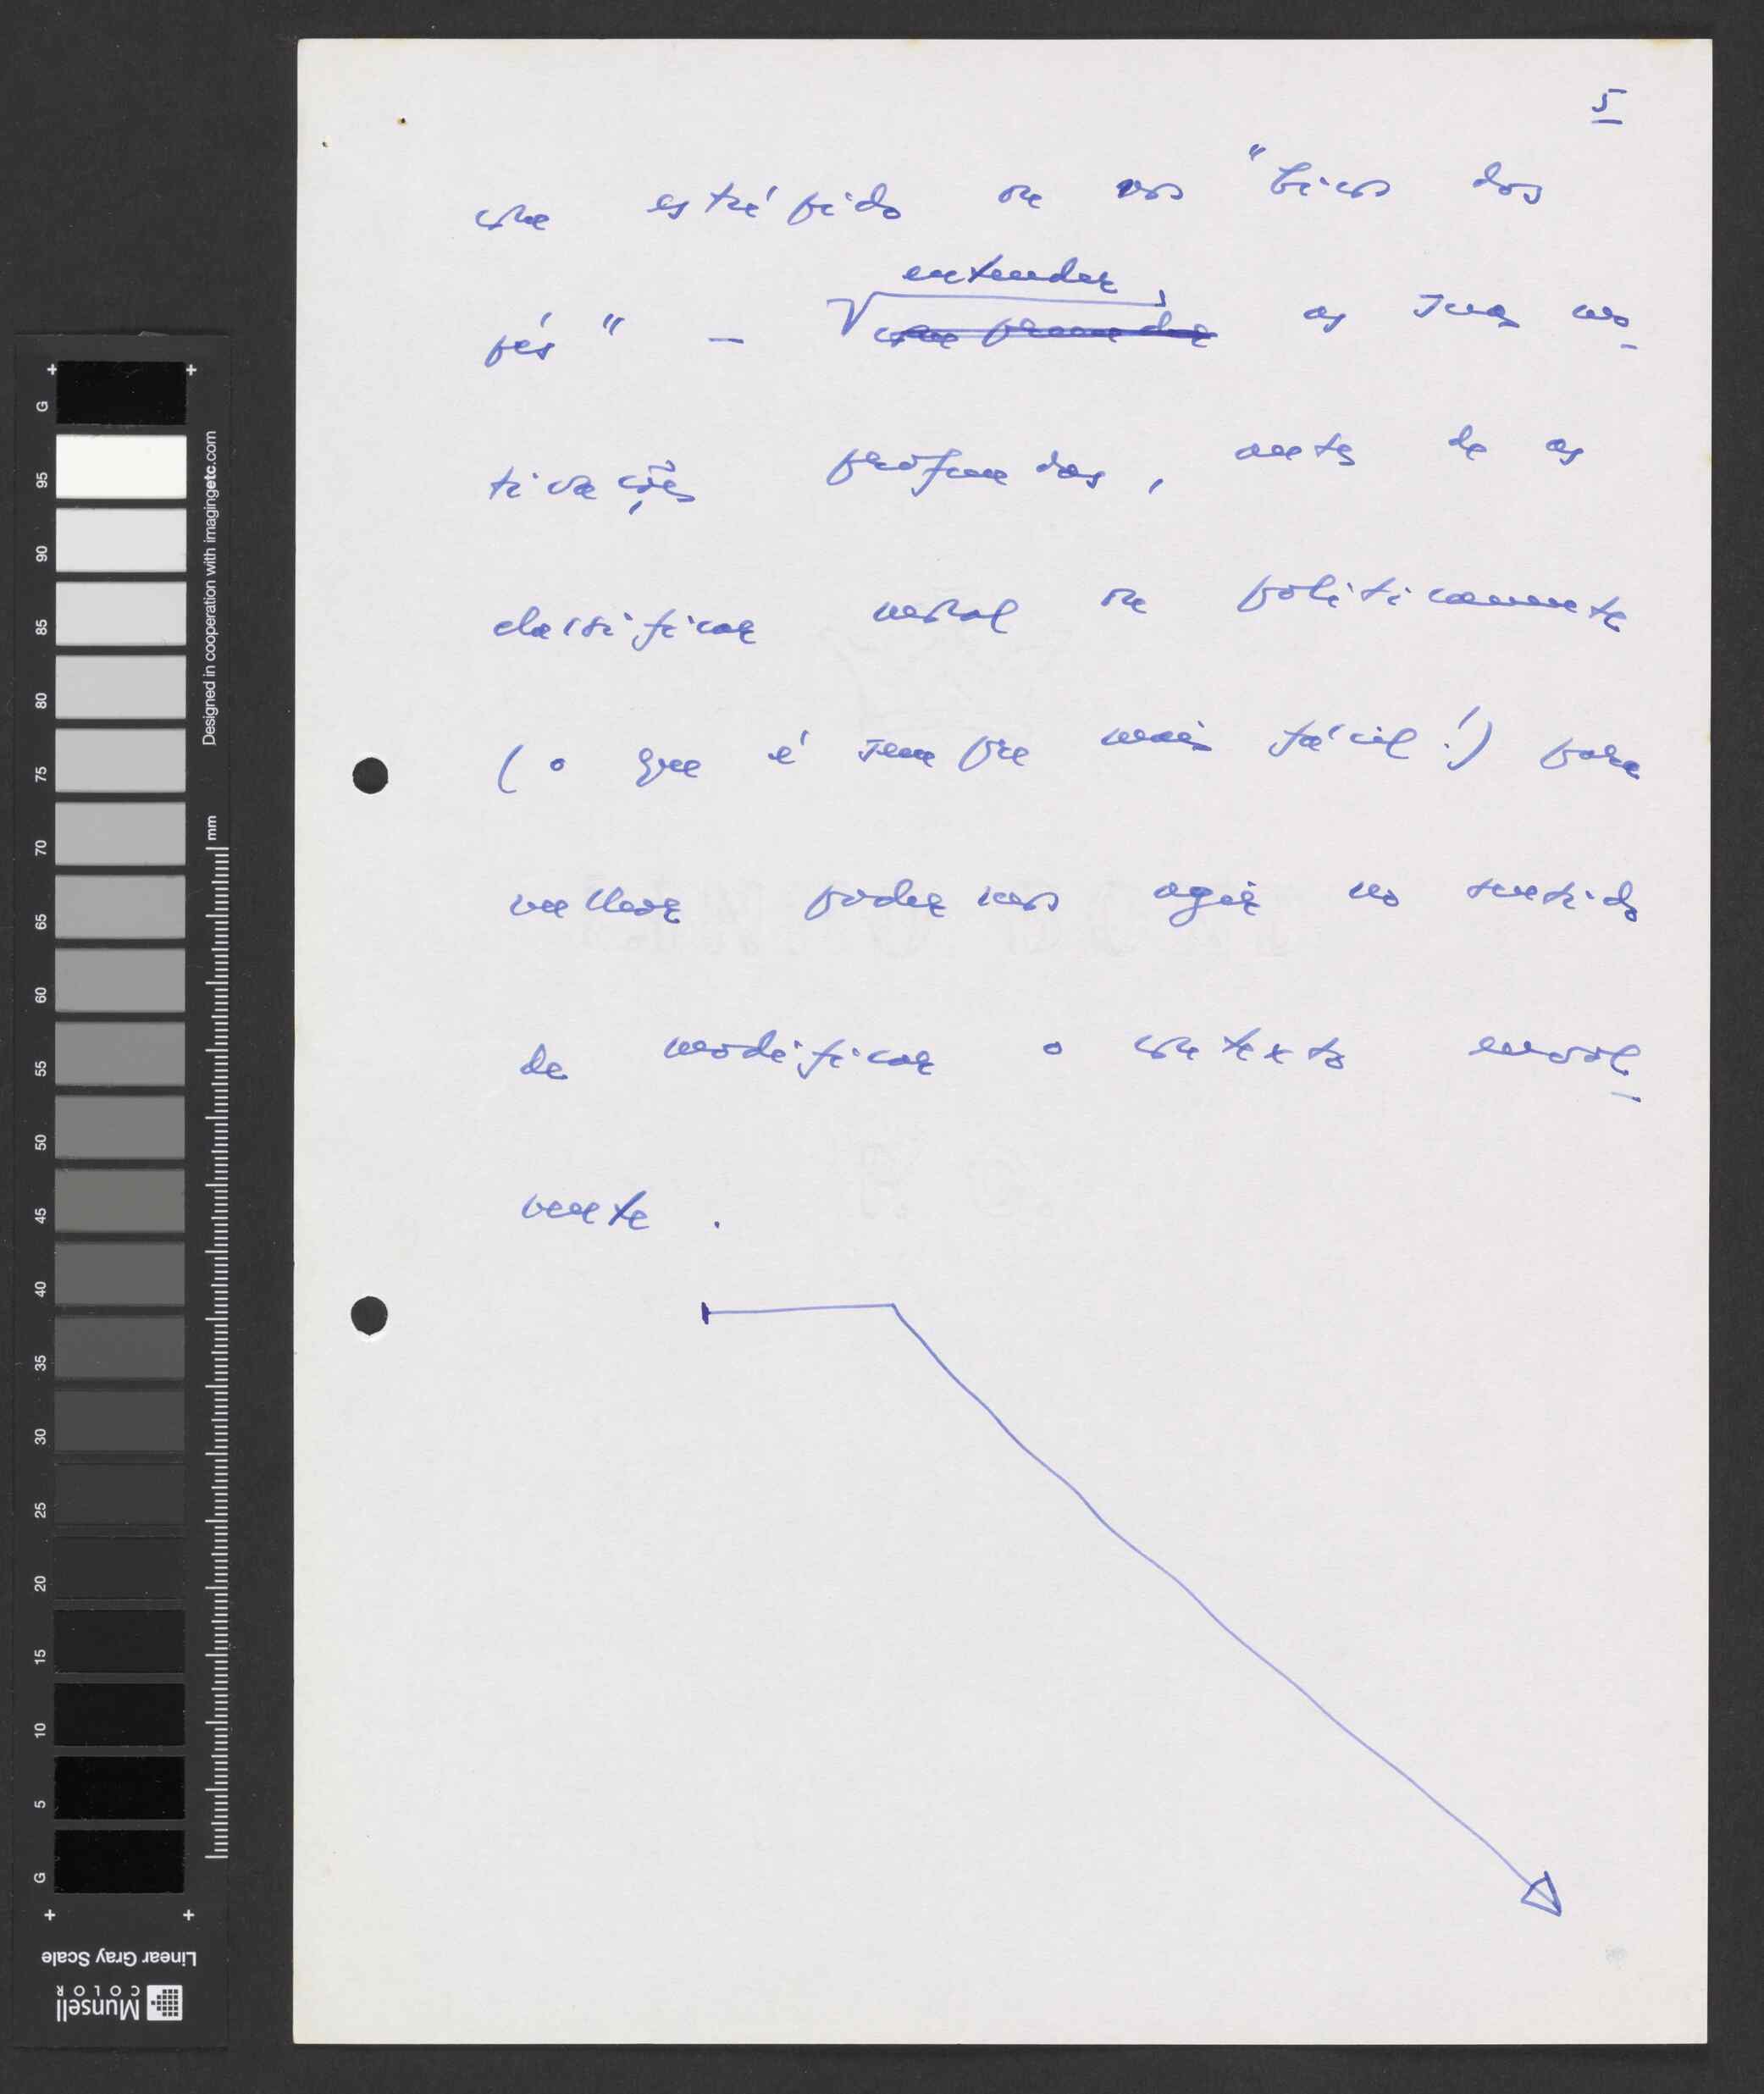 5
com estrépido ou nos "bicos dos
entender,
pés" — compreender as suas mo-
tivações profundas, antes de as
classificar moral ou politicamente
(o que é sempre mais fácil!) para
melhor podermos agir no sentido
de modificar o contexto envol-
vente.
G
95
90
85
80
75
70
65
60
55
50
45
40
35
30
25
20
15
10
5
G
Designed in cooperation with imagingetc.com
mm
Linear Gray Scale
Munsell
COLOR